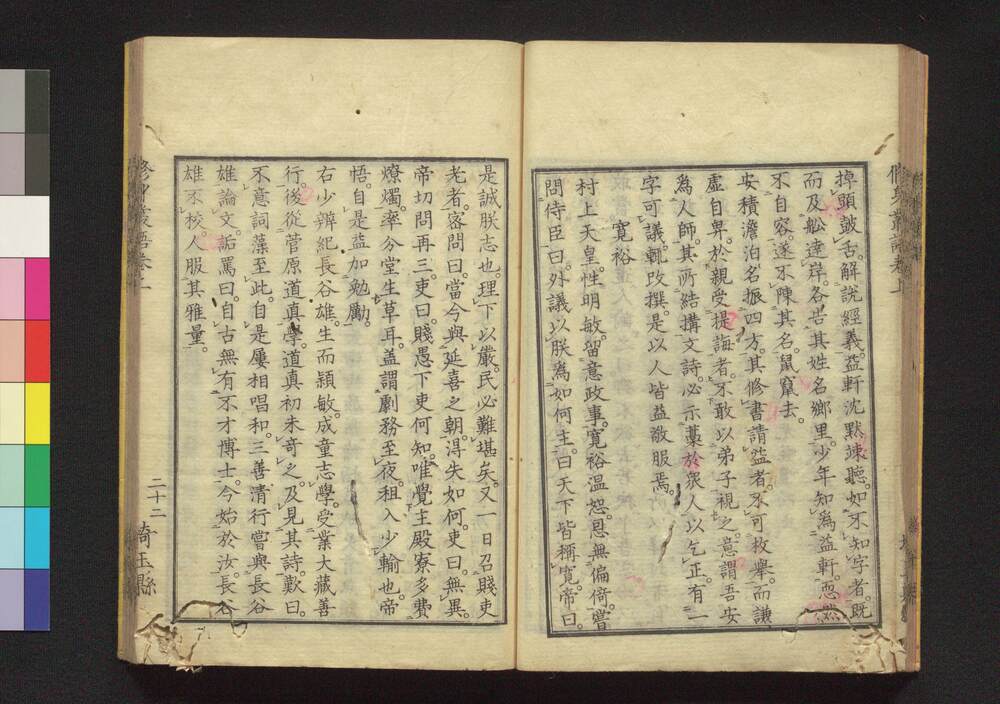 掉頭皷舌。解說經義。益軒沈默竦聽。如不知字者。既
而及舩達岸。各告其姓名鄉里。少年知爲益軒。忸怩
不自容。遂不陳其名。鼠竄去。
安積澹泊名振四方。其修書請益者。不可枚舉。而謙
虛自卑。於親受提誨者。不敢以弟子視之。意謂吾安
爲人師。其所結搆文詩。必示藁於衆人以乞正。有一
字可議。輙改撰。是以人皆益敬服焉。
寬裕
村上天皇。性明敏。留意政事。寬裕溫恕。恩無偏倚。嘗
問侍臣曰。外議以朕爲如何主。曰天下皆稱寬。帝曰。
是誠朕志也。理下以嚴。民必難堪矣。又一日召賤吏
老者。容問曰。當今與延喜之朝。得失如何。吏曰。無異。
帝切問再三。吏曰。賤愚下吏何知。唯覺主殿寮多費
燎燭。率分堂生草耳。盖謂劇務至夜。租入少輸也。帝
悟。自是益加勉勵。
右少辨紀長谷雄。生而穎敏。成童志學。受業大藏善
行。後從菅原道真學。道真初未奇之。及見其詩。歎曰。
不意詞藻至此。自是屢相唱和。三善清行嘗與長谷
雄論文。詬罵曰。自古無有不才博士。今始於汝。長谷
雄不校。人服其雅量。
二十二
埼玉縣